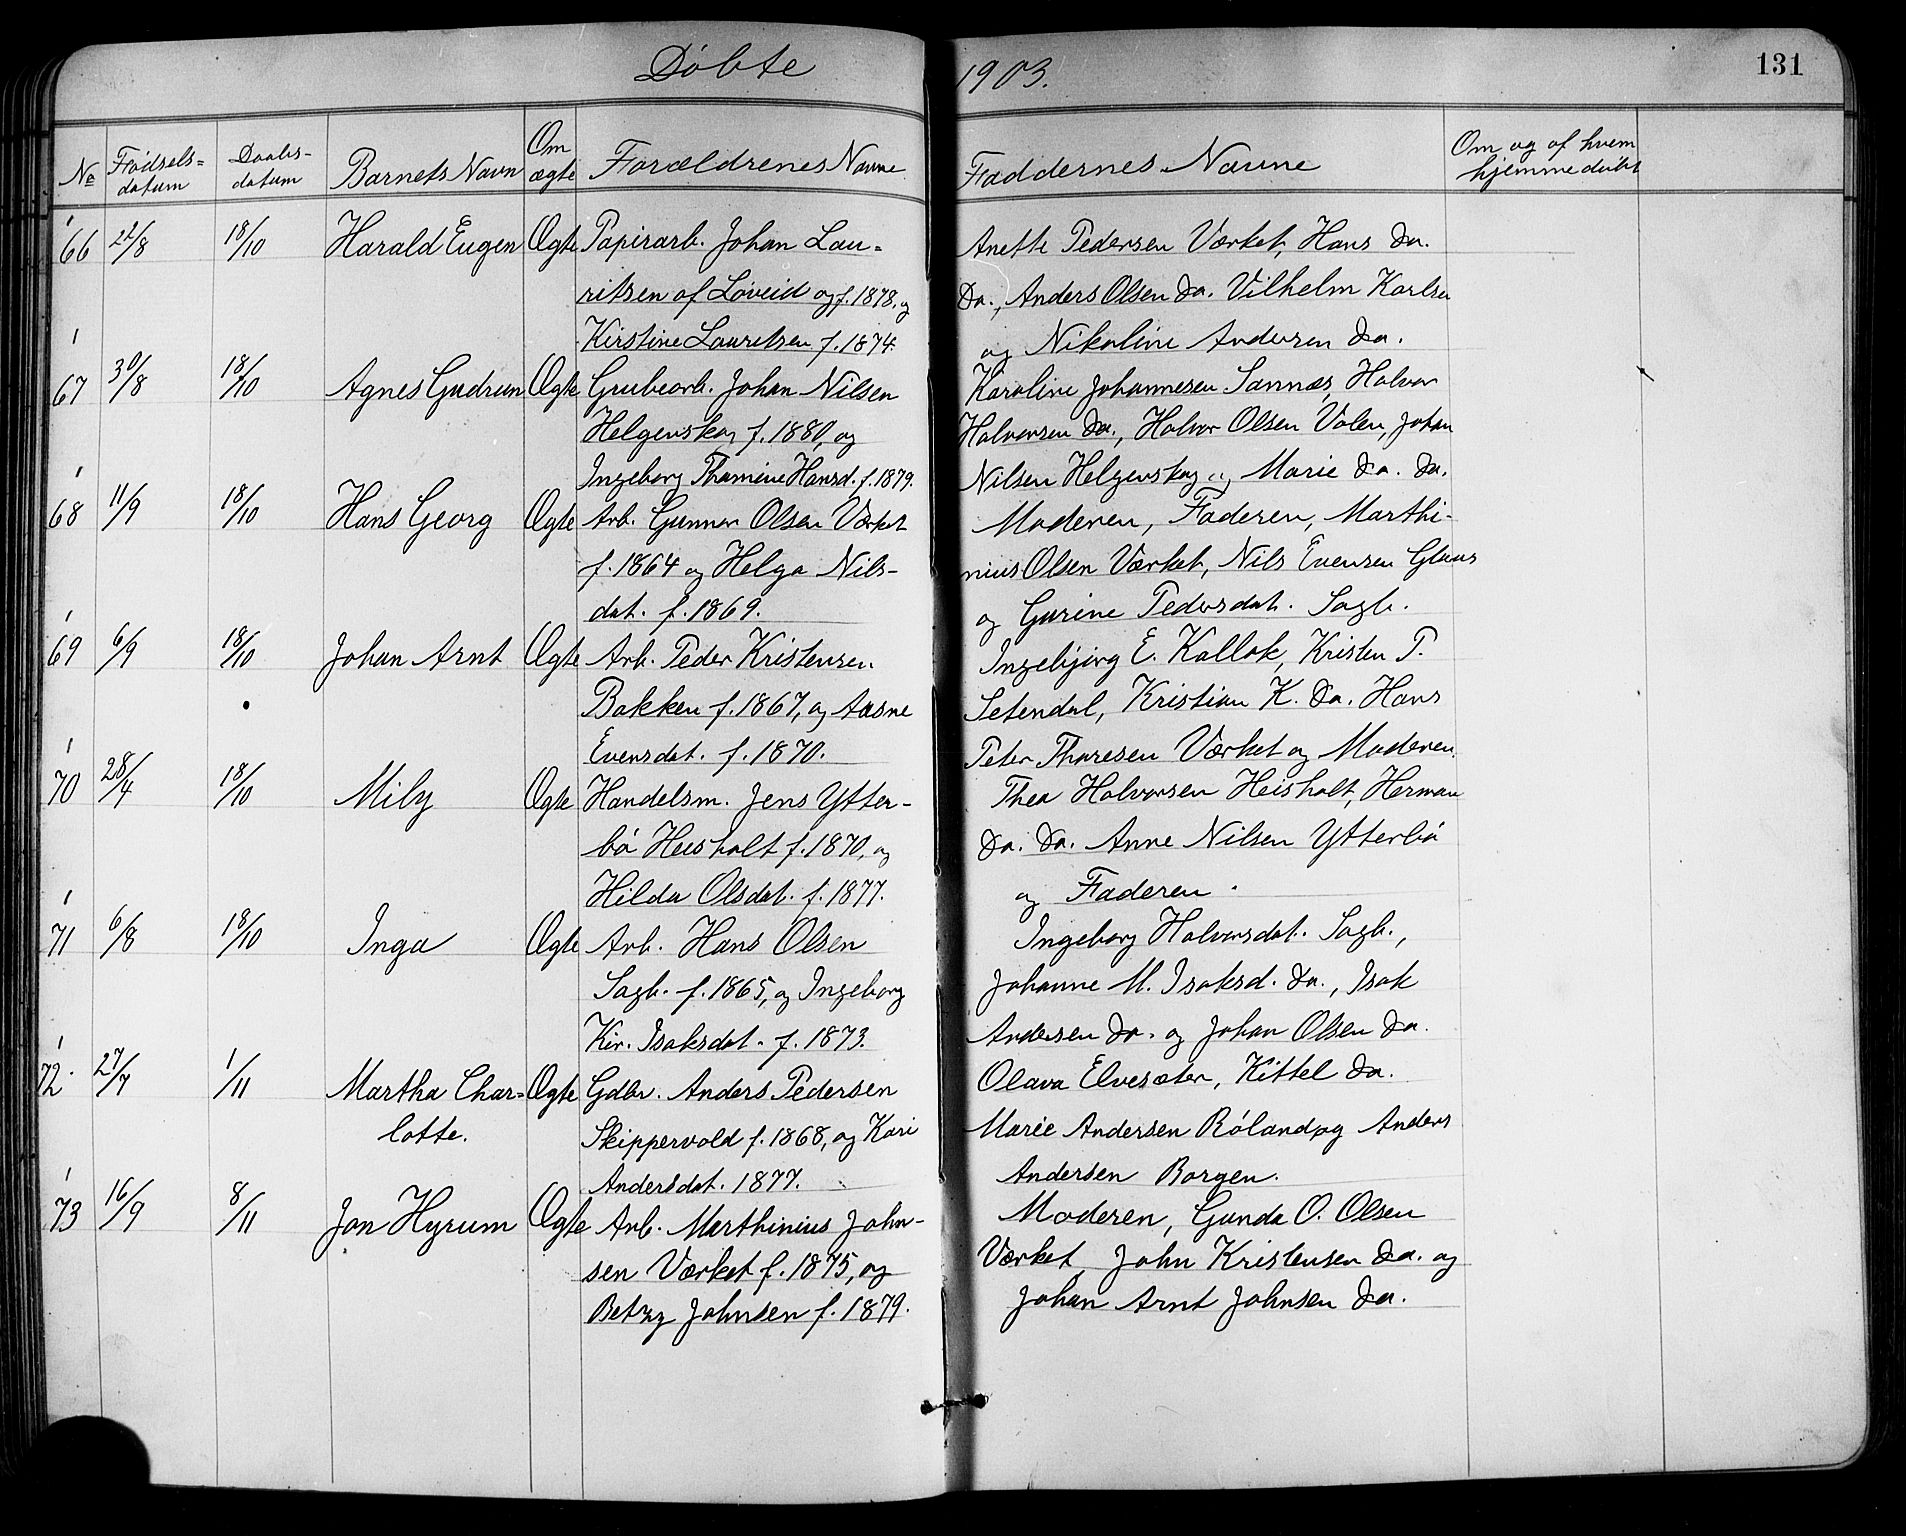 Döbte 1903. 131
№ Fødsels= datum Daabs- datum Barnets Navn Om ægte Forældrenes Navne Faddernes Navne Om og af hvem hjemmedøbt
66 22/8 18/10 Harald Eugen Ægte Papirarb. Johan Lau= Anette Pedersen Værket, Hans Do.
ritsen af Løveid og f. 1878, og Do., Anders Olsen Do. Vilhelm Karlsen
Kirstine Lauritsen f. 1874. og Nikoline Andersen Do.
67 30/8 18/10 Agnes Gudrun Ægte Grubearb. Johan Nilsen Karoline Johannesen Sannæs, Halvor
Helgenskag f. 1880, og Halvorsen Do., Halvor Olsen Valen, Johan
Ingeborg Thomine Hansd. f. 1879. Nilsen Helgenskag og Marie Do. Do.
68 11/9 18/10 Hans Georg Ægte Arb. Gunnar Olsen Værket Moderen, Faderen, Marthi-
f. 1864 og Helga Nils- nius Olsen Værket, Nils Evensen Glaas
dat. f. 1869. og Gurine Pedersdat. Sagb.
69 6/9 18/10 Johan Arnt Ægte Arb. Peder Kristensen Ingebjørg E. Kallak, Kristen P.
Bakken f. 1867, og Aasne Setendal, Kristian K. Do. Hans
Evensdat. f. 1870. Peter Thoresen Værket og Moderen.
70 28/4 18/10 Mily Ægte Handelsm. Jens Ytter- Thea Halvorsen Heisholt, Herman
bö Heisholt f. 1870, og Do. Do. Anne Nilsen Ytterbö
Hilda Olsdat. f. 1877. og Faderen.
71 6/8 18/10 Inga Ægte Arb. Hans Olsen Ingeborg Halvorsdat. Sagb.,
Sagb. f. 1865, og Ingeborg Johanne M. Isaksd. Do., Isak
Kir. Isaksdat. f. 1873. Andersen Do. og Johan Olsen Do.
72. 27/7 1/11 Martha Char= Ægte Gdbr. Anders Pedersen Olava Elvesæter, Kittel Do.
lotte. Skippervold f. 1868, og Kari Marie Andersen Röland og Anders
Andersdat. 1877. Andersen Borgen.
73 16/9 8/11 Jon Hyrum Ægte Arb. Marthinius John- Moderen, Gunda O. Olsen
sen Værket f. 1875, og Værket, John Kristensen Do. og
Betzy Johnsen f. 1879. Johan Arnt Johnsen Do.